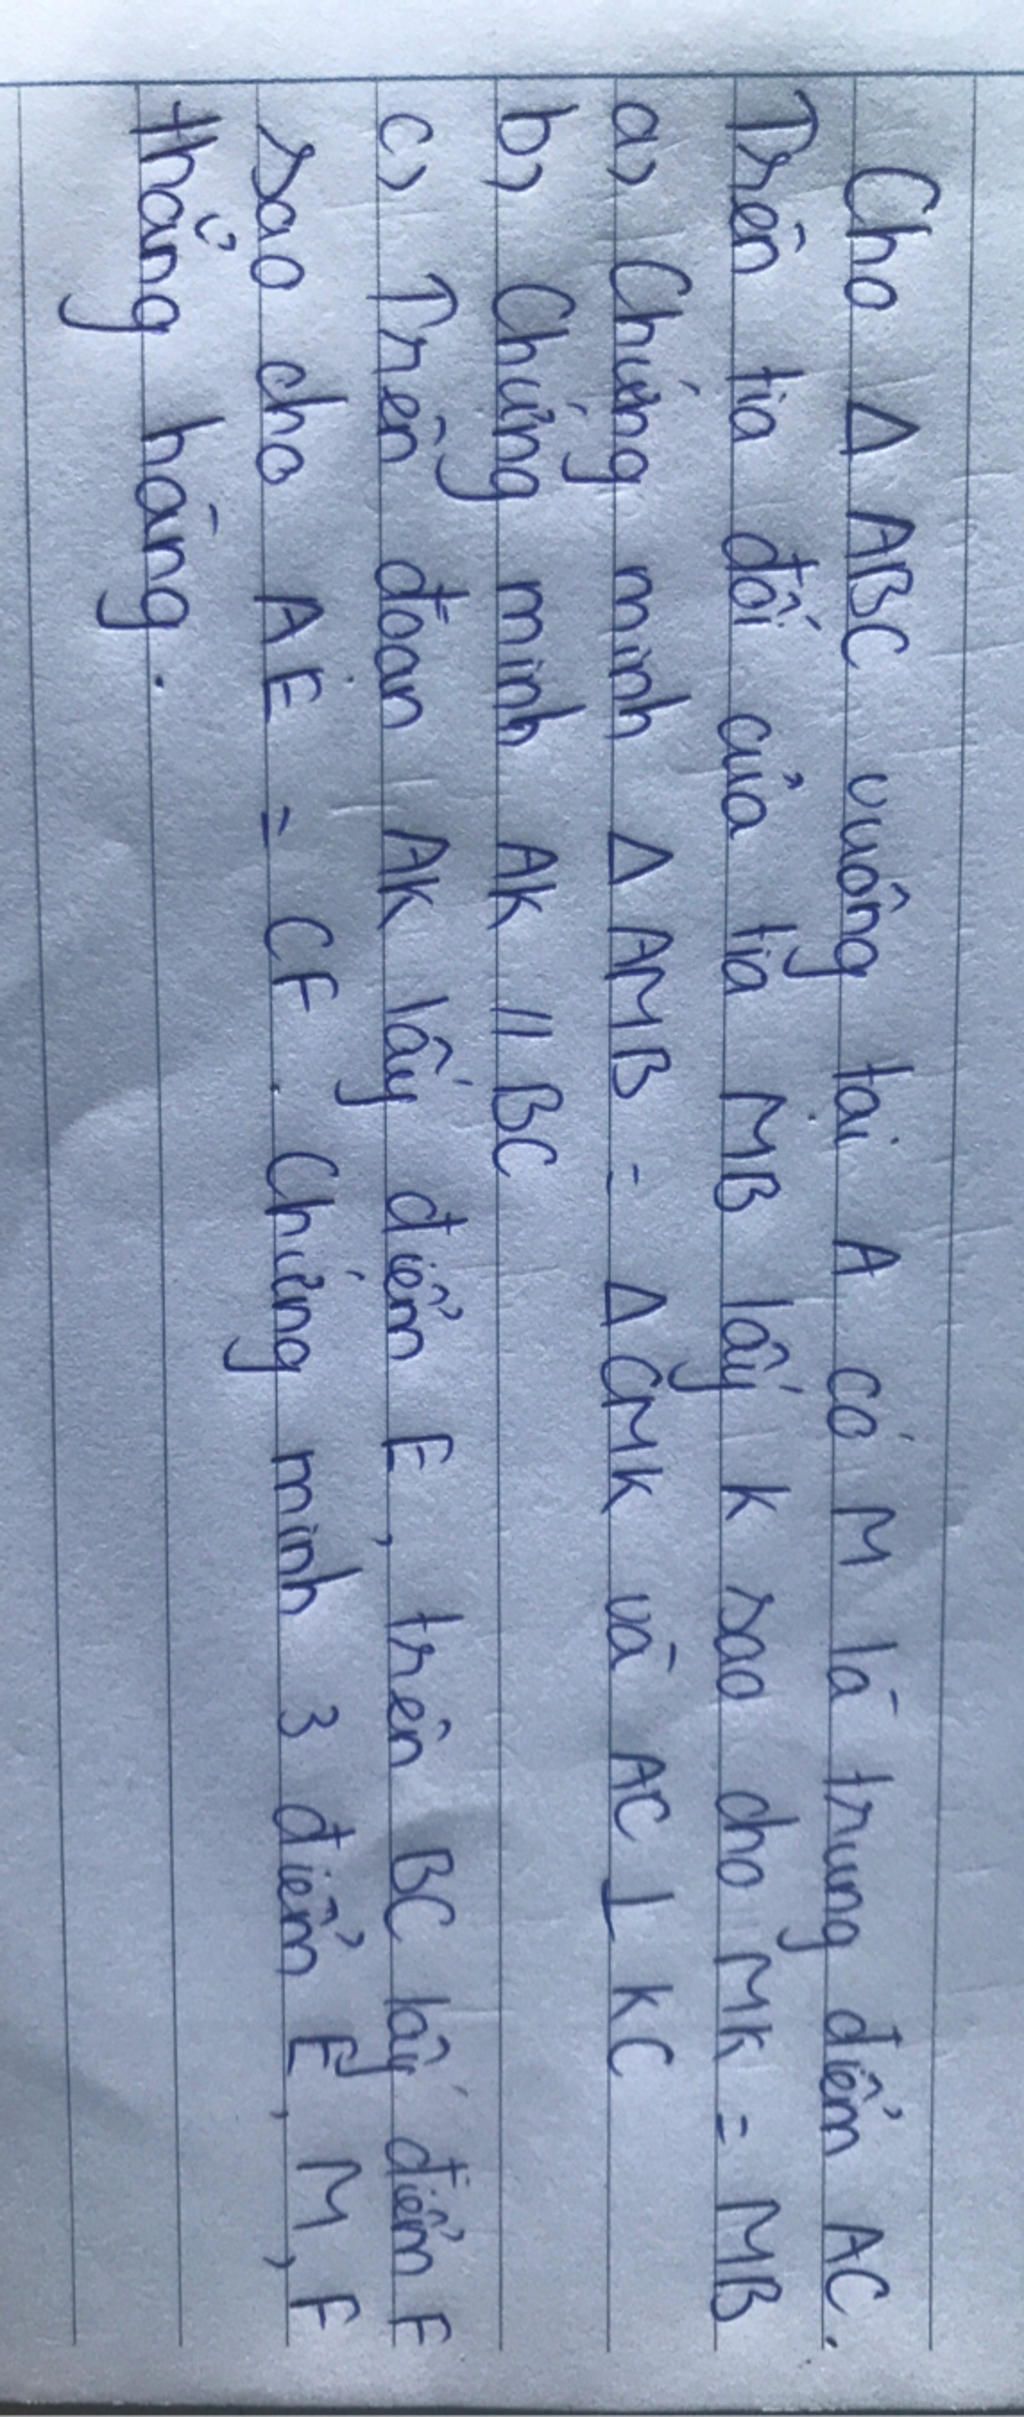 Cho Δ ABC vuông tại A có M là trung điểm AC.
Trên tia đối của tia MB lấy K sao cho MK = MB
a) Chứng minh Δ AMB = Δ CMK và AC ⊥ KC
b) Chứng minh AK // BC
c) Trên đoạn AK lấy điểm E, trên BC lấy điểm F
sao cho AE = CF. Chứng minh 3 điểm E, M, F
thẳng hàng.